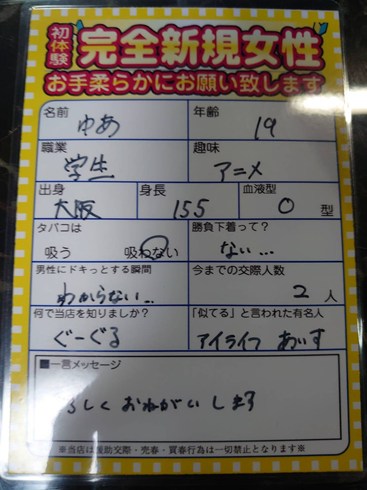 初体験
完全新規女性
お手柔らかにお願い致します
名前 ゆあ 年齢 19
職業 学生 趣味 アニメ
出身 大阪 身長 155 血液型 O 型
タバコは 吸う 吸わない 勝負下着って? ない...
男性にドキっとする瞬間 わからない... 今までの交際人数 2 人
何で当店を知りましたか? ぐーぐる 「似てる」と言われた有名人
■一言メッセージ
ろしくおねがいします
※当店は援助交際・売春・買春行為は一切禁止となります※